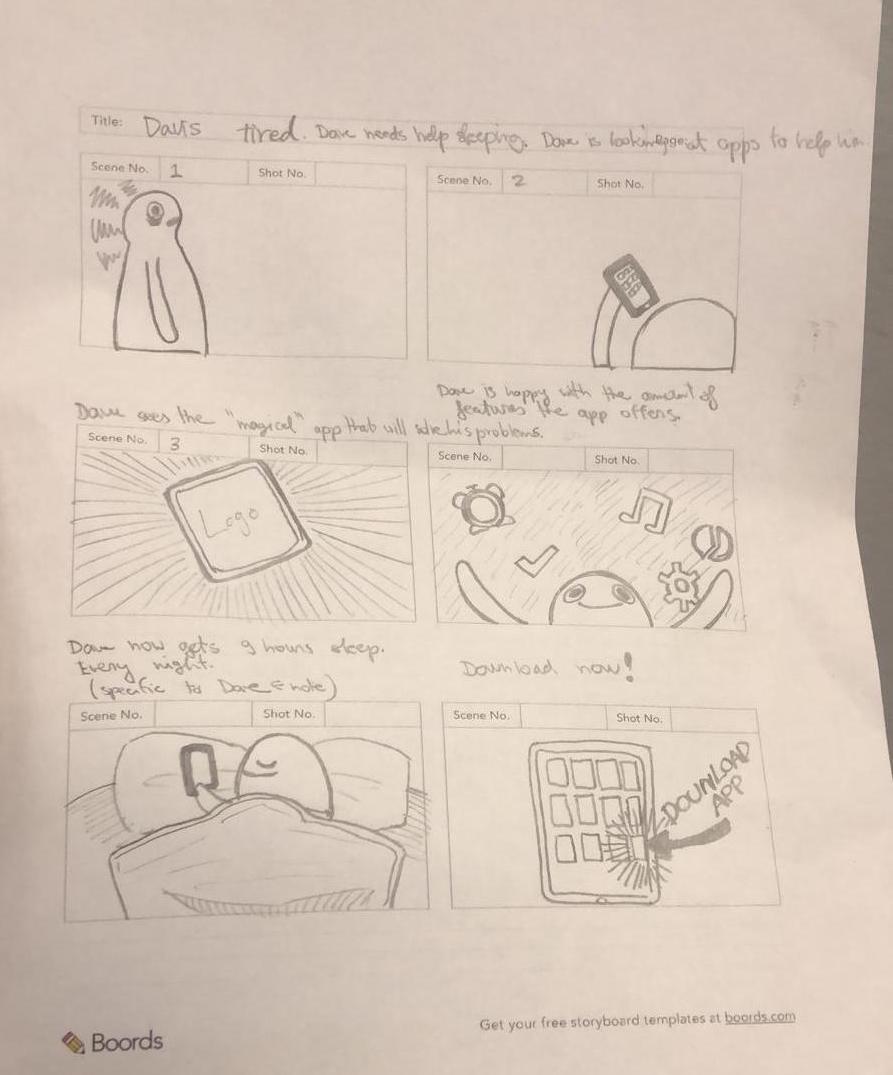 Title: Dav is tired. Dave needs help sleeping. Dave is looking at apps to help him
Scene No. 1 Shot No.
Scene No. 2 Shot No.
Dave sees the "magical" app that will solve his problems.
Dave is happy with the amount of
features the app offers.
Scene No. 3 Shot No.
Scene No. Shot No.
Logo
Dave now gets 9 hours sleep.
Every night.
(specific to Dave note)
Download now!
Scene No. Shot No.
Scene No. Shot No.
DOWNLOAD
APP
Boords
Get your free storyboard templates at boords.com